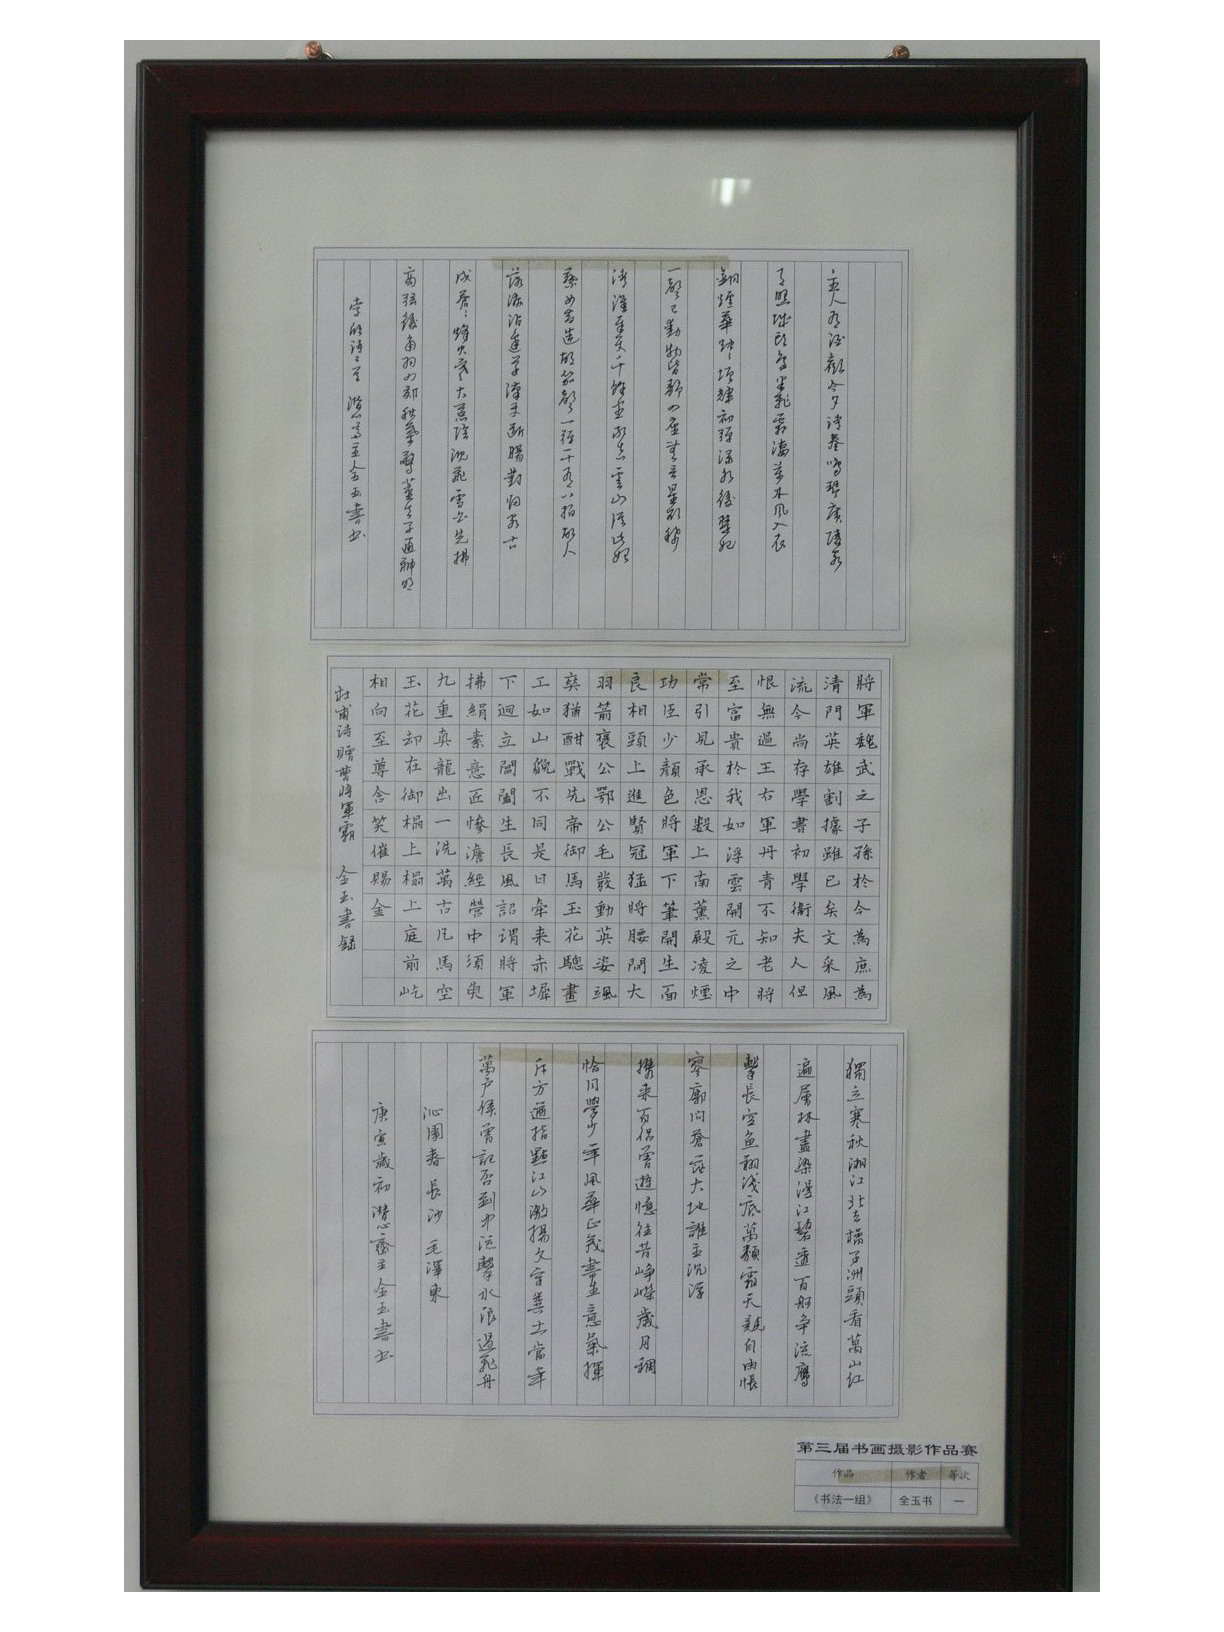 主人有酒歡今夕請奏鳴琴廣陵客
月照城頭烏半飛霜淒萬木風入衣
銅爐華燭〻增輝初彈淥水後楚妃
一聲已動物皆靜四座無言星欲稀
清淮奉使千餘里敢告雲山從此始
蔡女昔造胡笳聲一彈一十有八拍胡人
落淚沾邊草漢使斷腸對歸客古
戍蒼〻烽火寒大荒沈飛雪白先拂
商弦後角羽四郊秋葉驚董夫子通神明
李頎詩二首 潛齋主金玉書
將軍魏武之子孫於今為庶為
清門英雄割據雖已矣文采風
流今尚存學書初學衛夫人但
恨無過王右軍丹青不知老將
至富貴於我如浮雲開元之中
常引見承恩數上南薰殿凌煙
功臣少顏色將軍下筆開生面
良相頭上進賢冠猛將腰間大
羽箭褒公鄂公毛發動英姿颯
爽猶酣戰先帝御馬玉花驄畫
工如山貌不同是日牽来赤墀
下迥立閶闔生長風詔謂將軍
拂絹素意匠慘澹經營中須臾
九重真龍出一洗萬古凡馬空
玉花却在御榻上榻上庭前屹
相向至尊含笑催賜金
杜甫詩贈曹將軍霸 金玉書錄
獨立寒秋湘江北去橘子洲頭看萬山紅
遍層林盡染漫江碧透百舸争流鷹
擊長空魚翔淺底萬類霜天競自由悵
寥廓問蒼茫大地誰主沉浮
攜来百侶曾遊憶往昔崢嶸歲月稠
恰同學少年風華正茂書生意氣揮
斥方遒指點江山激揚文字糞土當年
萬戶侯曾記否到中流擊水浪遏飛舟
沁園春 長沙 毛澤東
庚寅歲初潛心齋主金玉書
第三届书画摄影作品赛
作品 作者 等次
《书法一组》 全玉书 一